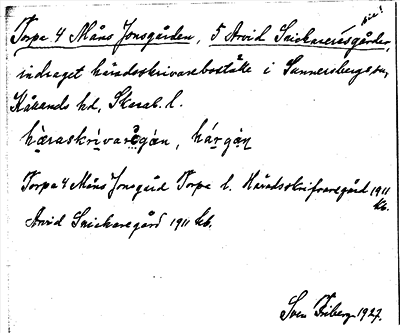 sic!
Torpa 4 Måns Jonsgården, 5 Arvid Snickaregården,
indraget häradsskrivareboställe i Sunnersbergs sn,
Kållands hd, Skarab. l.
hæraskrìvaregàn, hárgàn
Torpa 4 Måns Jonsgård Torpa l. Häradsskrifvaregård 1911
kb.
Arvid Snickaregård 1911 kb.
Sven Friberg 1927.